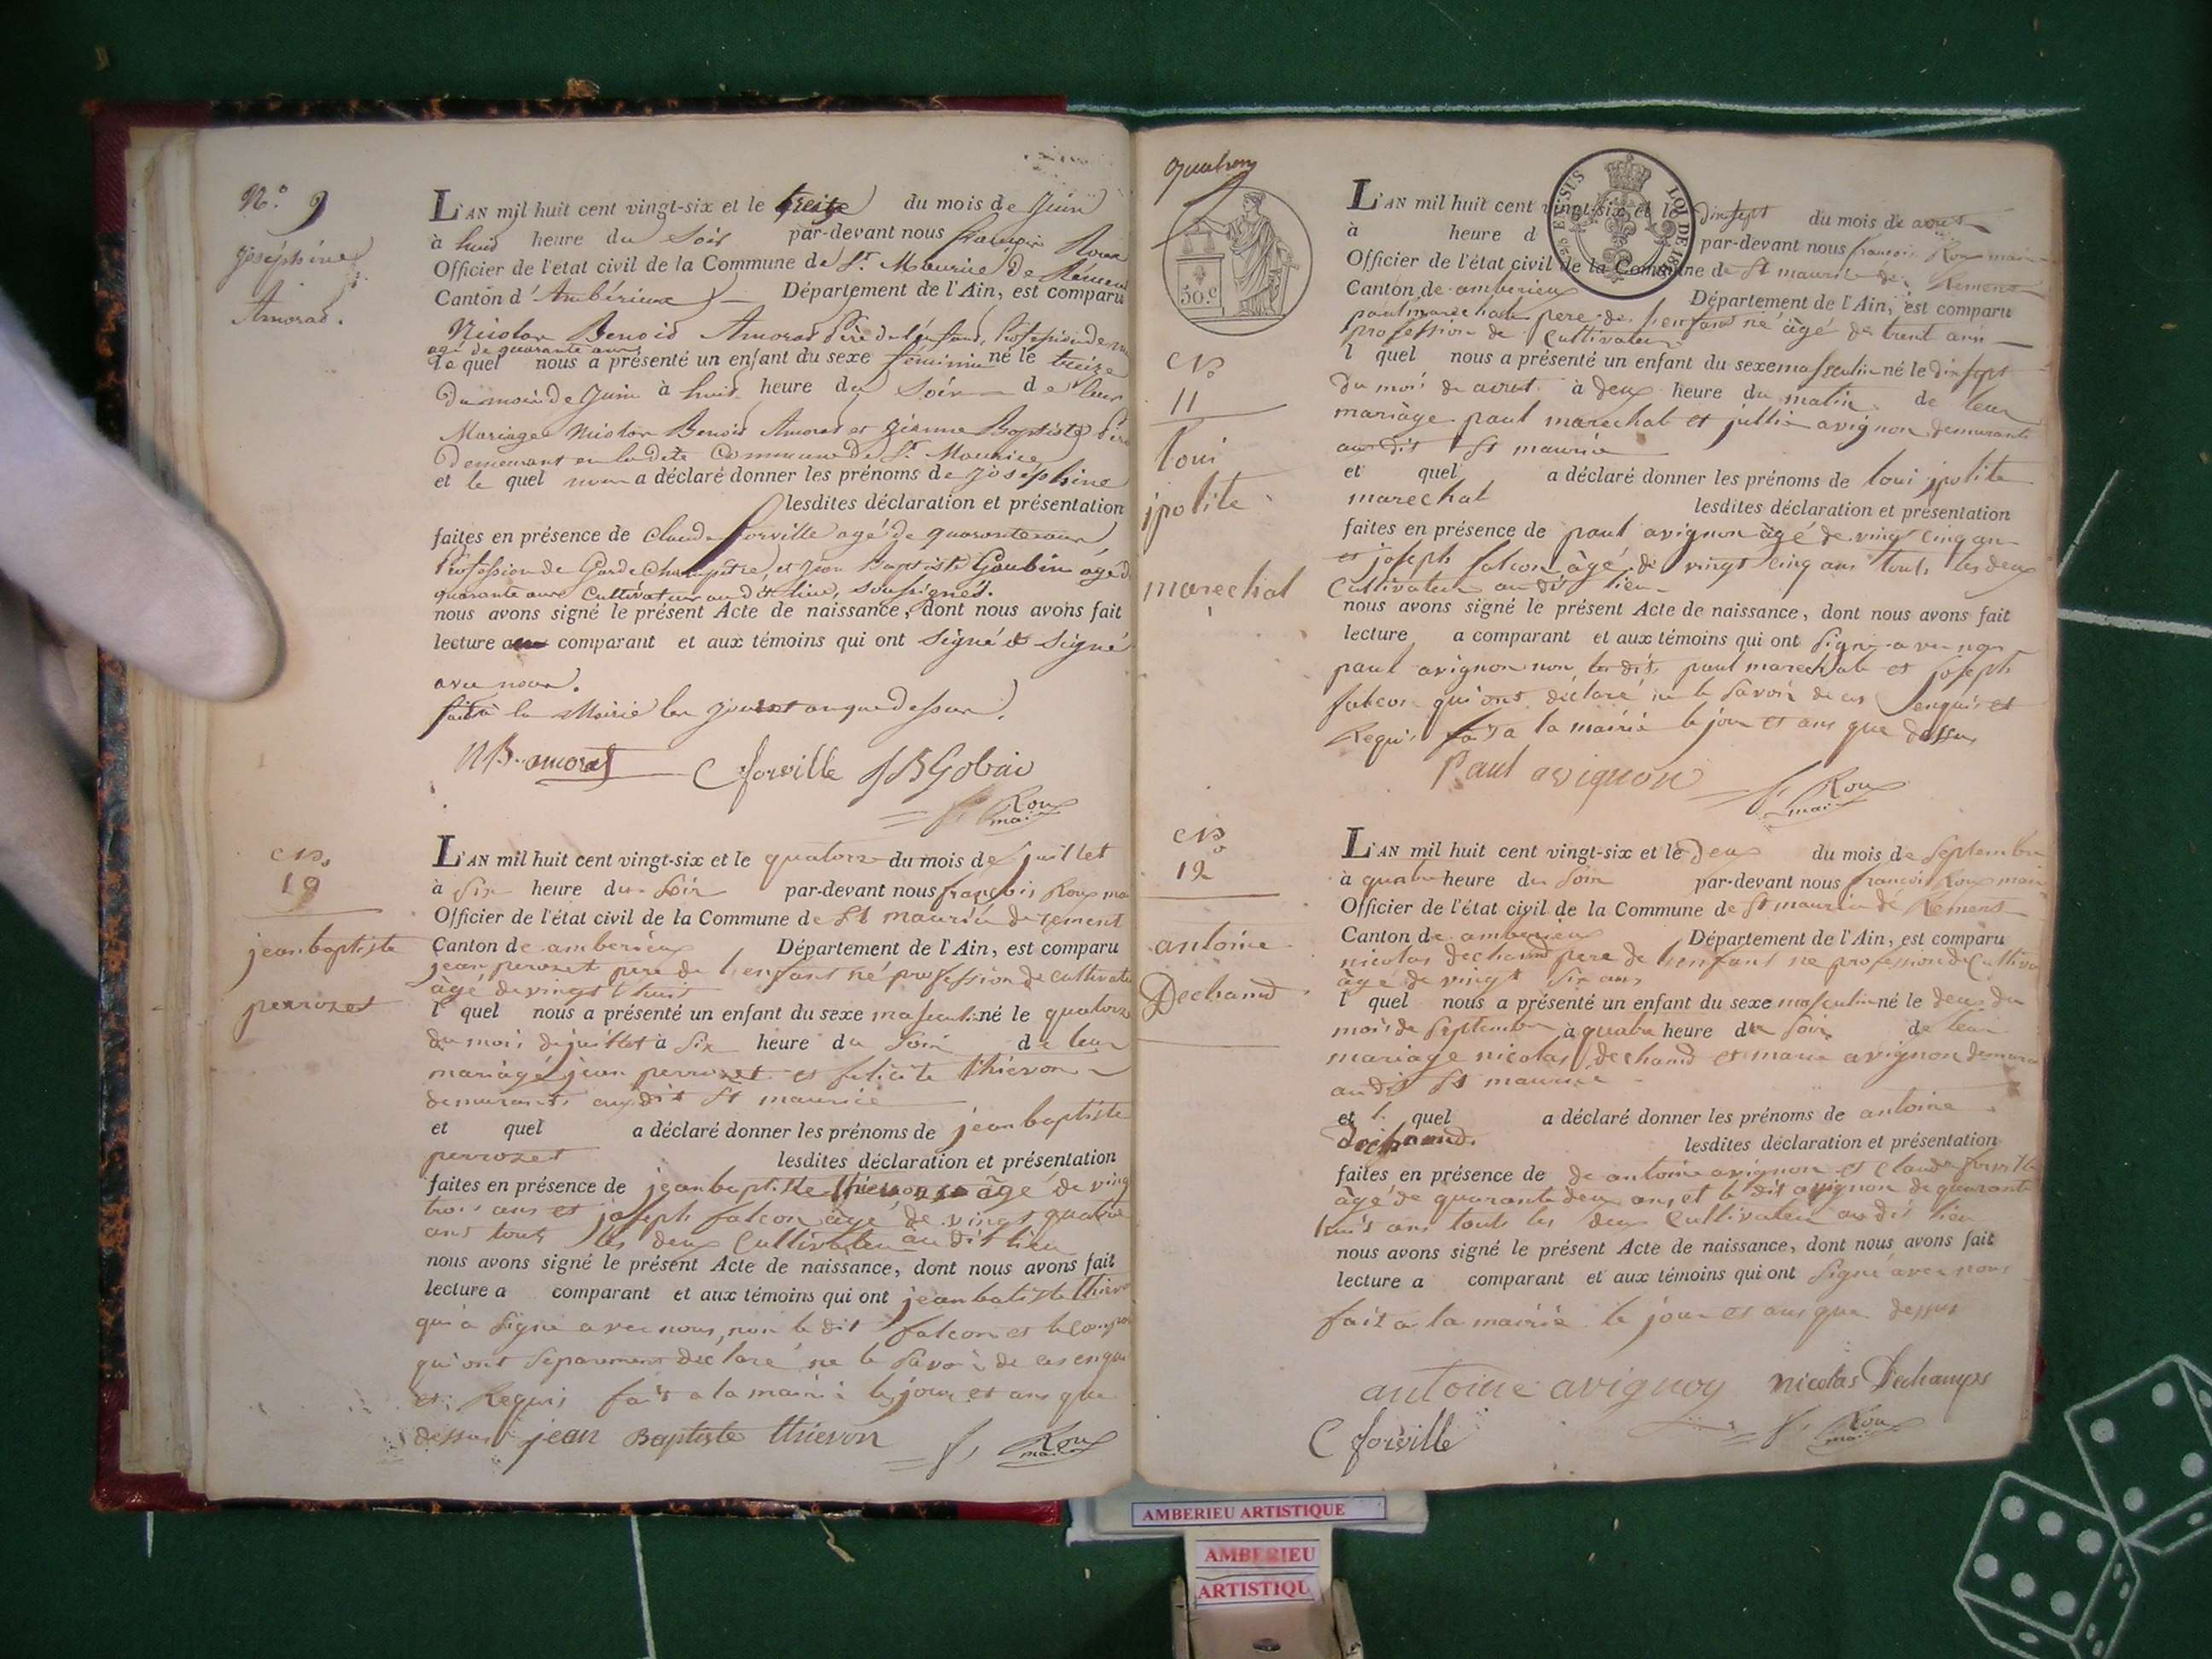 N.o 9
joséphine
Amorad.
L'AN mil huit cent vingt-six et le treize du mois de Juin
à huit heure du Soir par-devant nous françois Roux
Officier de l'état civil de la Commune de St. Maurice de Rémens
Canton d'Ambérieux Département de l'Ain, est comparu
Nicolas Benoid Amorad Père de l'enfant, Profession de
agé de quarante ans
le quel nous a présenté un enfant du sexe féminin né le treize
du mois de Juin à huit heure du Soir de leur
Mariage Nicolas Benoid Amorad et jeanne Baptiste
demeurant en ladite Commune de St. Maurice
et le quel nous a déclaré donner les prénoms de joséphine
lesdites déclaration et présentation
faites en présence de Claude forville agé de quarante ans
Profession de Garde Champêtre, et Jean Baptiste Goubin agé de
quarante ans Cultivateur au dit lieu, soussignés.
nous avons signé le présent Acte de naissance, dont nous avons fait
lecture au comparant et aux témoins qui ont signé & signé
avec nous.
fait à la Mairie les jour et an que dessus.
NB. amorad C forville JB Gobin
f. Roux
mai
No
10
jean baptiste
perrozet
L'AN mil huit cent vingt-six et le quatorze du mois de juillet
à Six heure du Soir par-devant nous françois Roux ma
Officier de l'état civil de la Commune de St maurice de rement
Canton de amberieux Département de l'Ain, est comparu
jean perrozet pere de l'enfant né profession de cultivate
âgé de vingt huit
l quel nous a présenté un enfant du sexe masculin né le quatorze
du mois de juillet à Six heure du Soir de leur
mariage jean perrozet et felicite thievon
demurants aux dit St maurice
et quel a déclaré donner les prénoms de jean baptiste
perrozet lesdites déclaration et présentation
faites en présence de jean baptiste thievon âgé de ving
trois ans et joseph falcon âgé de vingt quatre
ans touts les deux Cultivateu au dit lieu
nous avons signé le présent Acte de naissance, dont nous avons fait
lecture a comparant et aux témoins qui ont jean batiste thievo
qui a Signé avec nous, non le dit falcon et le
qui ont declaré ne le Savoir de ces enqui
et Requis fait a la mairie le jour et ans que
dessus jean Baptiste thievon f. Roux
mai
quatorze
50.c
LOI DE 18
No
11
loui
ipolite
marechal
L'AN mil huit cent vingt-six et le dix sept du mois de aout
à heure d par-devant nous françois Roux maire
Officier de l'état civil de la Commune de St maurice de Remens
Canton de amberieux Département de l'Ain, est comparu
paul marechal pere de l'enfant né âgé de trent ans
profession de Cultivateur
l quel nous a présenté un enfant du sexe masculin né le dix sept
du mois de aout à deux heure du matin de leur
mariage paul marechal et jullie avignon demurants
au dit St maurice
et quel a déclaré donner les prénoms de loui ipolite
marechal lesdites déclaration et présentation
faites en présence de paul avignon âgé de vingt cinq an
et joseph falcon âgé de vingt cinq ans touts les deux
Cultivateu au dit lieu
nous avons signé le présent Acte de naissance, dont nous avons fait
lecture a comparant et aux témoins qui ont Signe avec nous
paul avignon non les dits paul marechal et joseph
falcon qui ont déclaré ne le Savoir de ces enquis et
Requis fait a la mairie le jour et ans que dessus
Paul avignon f. Roux
mai
No
12
antoine
Dechamd
L'AN mil huit cent vingt-six et le deux du mois de Septembre
à quatre heure du Soir par-devant nous françois Roux maire
Officier de l'état civil de la Commune de St maurice de Remens
Canton de amberieux Département de l'Ain, est comparu
nicolas dechamd pere de l'enfant ne profession de Cultiva
âgé de vingt Six ans
l quel nous a présenté un enfant du sexe masculin né le deux du
mois de Septembre à quatre heure du Soir de leur
mariage nicolas dechamd et marie avignon demura
au dit St maurice
et l quel a déclaré donner les prénoms de antoine
dechamd. lesdites déclaration et présentation
faites en présence de de antoine avignon et claude forville
âgé de quarante deux ans, et le dit avignon de quarante
huit ans touts les deux Cultivateu au dit lieu
nous avons signé le présent Acte de naissance, dont nous avons fait
lecture a comparant et aux témoins qui ont Signé avec nous
fait a la mairie le jour et ans que dessus
antoine avignon nicolas Dechamps
C forville f. Roux
mai
AMBERIEU ARTISTIQUE
AMBERIEU
ARTISTIQU